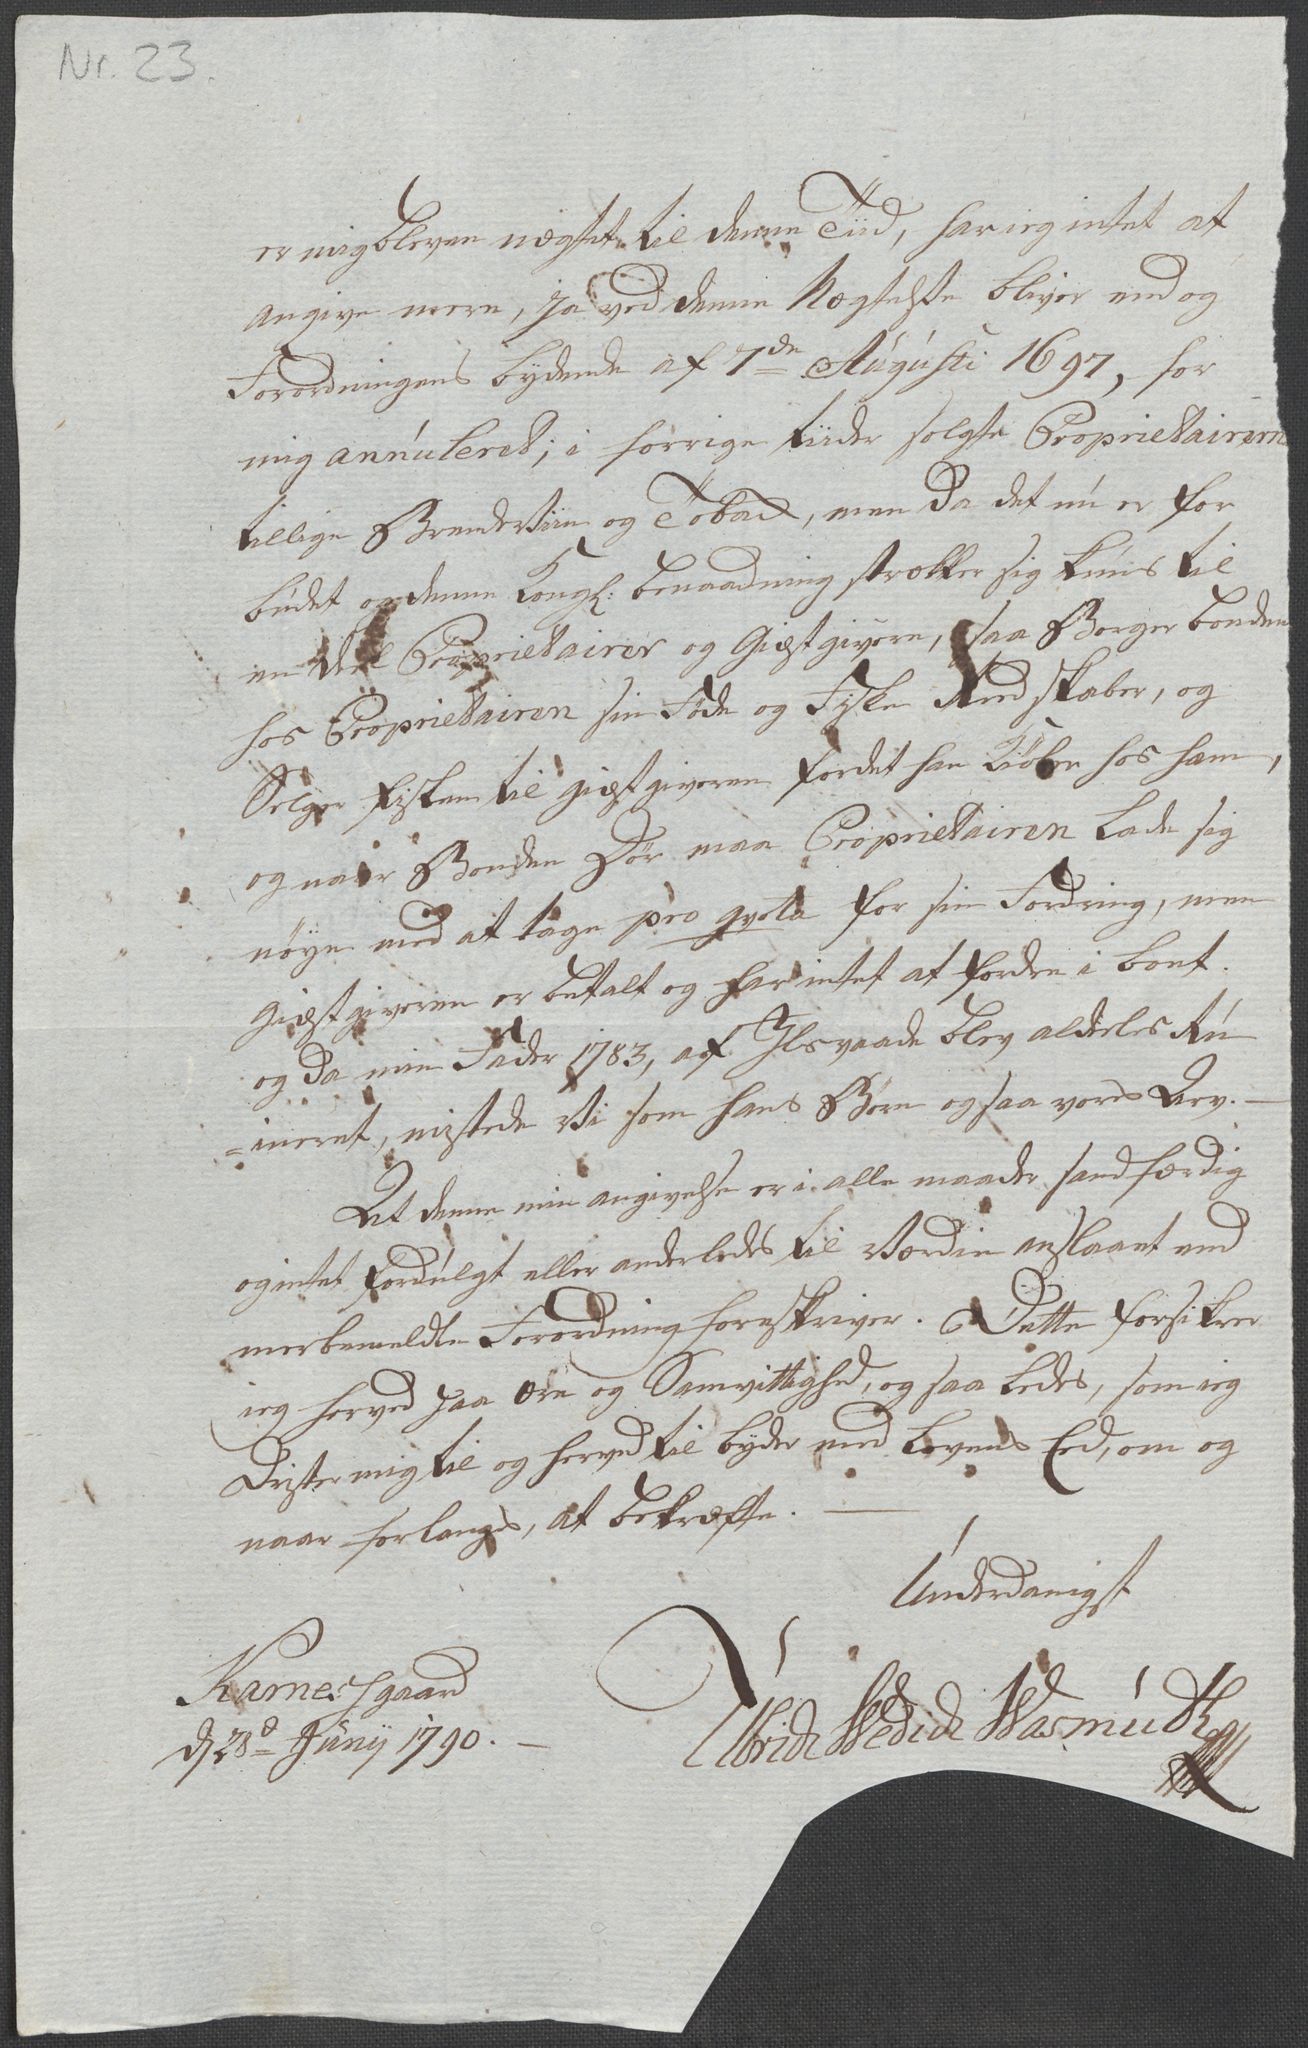 Nr. 23.
er mig bleven nægtet til denne Tiid, har ieg intet at
angive mere, Ja ved denne Nægtelse bliver end og
Forordningens bydende af 7de Augusti 1697, for
mig annuleret; i forrige tiider solgte Proprietairern
tillige Brendeviin og Tobak, men da det nu er for
budet og denne Kongl: benaadning strækker sig kuns til
en deel Proprietairer og Giæstgivere, saa Borger bonden
hos Proprietairen sin Føde og Fiske Redskaber, og
Selger fisken til giæstgiveren fordet han Kiøber hos ham,
og naar Bonden Dør maa Proprietairen lade sig
nøye med at tage pro qvota for sin Fordring, men
Giæstgiveren er betalt og har intet at fordre i boet.
og da min Fader 1783, af Ilsvaade blev aldeles Ru
= ineret, mistede vi som hans Børn og saa vores Arv. —
At denne min angivelse er i alle maader sandfærdig
og intet fordulgt eller anderledes til Værdie anslaaet end
merbemeldte Forordning foreskriver. Dette forsikrer
ieg herved paa Ære og Samvittighed, og saa ledes, som ieg
Drister mig til og herved til byder med Lovens Eed, om og
naar forlanges, at bekræfte. —
Underdanigst
Karnesgaard
d 28d Junij 1790. —
Ulrich Wedich Wasmuth